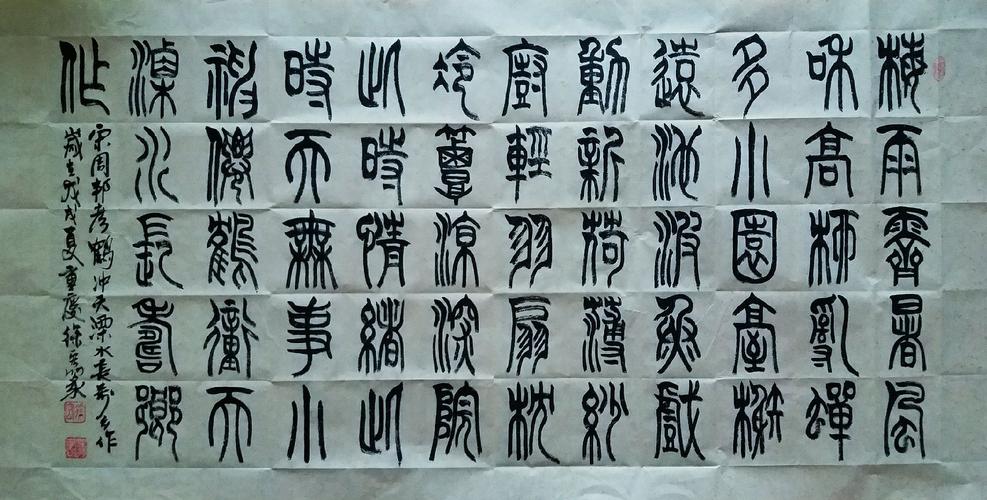 梅雨霽暑風
和高柳亂蟬
多小園臺榭
遠池波魚戲
動新荷薄紗
廚輕羽扇枕
冷簟涼深院
此時情緒此
時天無事小
神僊鶴衝天
溧水長壽鄉
作
宋周邦彥鶴冲天溧水長壽乡作
歲在戊戌夏重慶徐